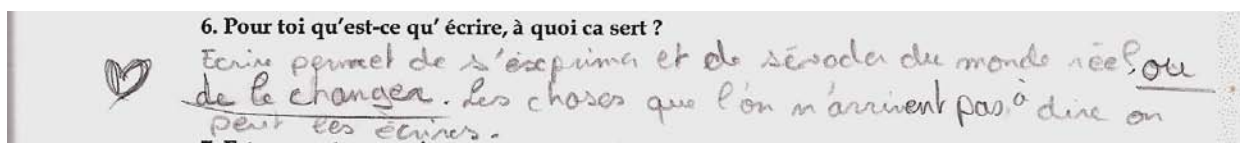 6. Pour toi qu'est-ce qu' écrire, à quoi ca sert ?
Ecrire permet de s'éxprimer et de sévader du monde réel, ou
de le changer. Les choses que l'on n'arrivent pas à dire on
peut les écrires.